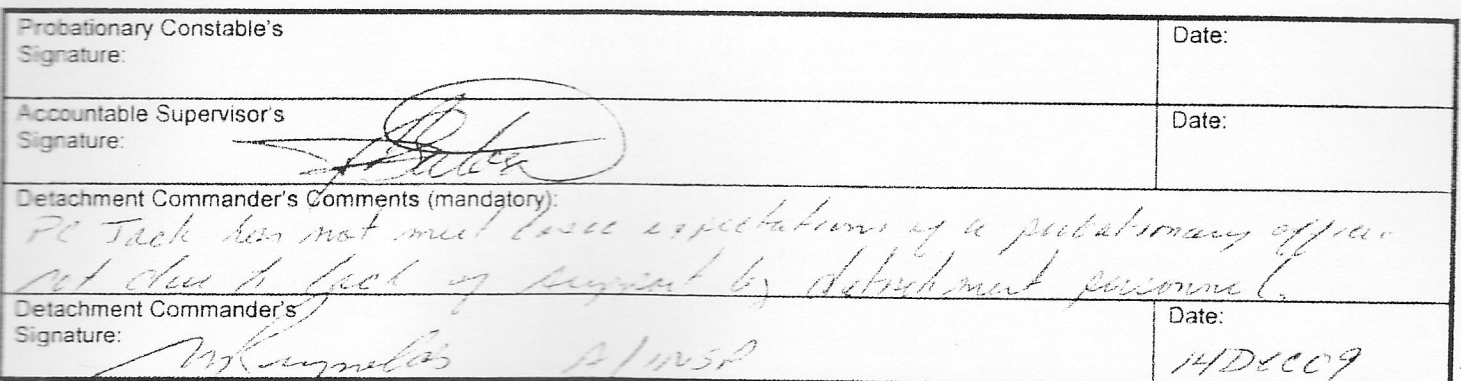 Probationary Constable's
Signature:
Date:
Accountable Supervisor's
Signature:
Date:
Detachment Commander's Comments (mandatory):
PC Jack has not met basic expectations of a probationary officer
not due to lack of support by detachment personnel.
Detachment Commander's
Signature:
Date:
MReynolds A/INSP
14DEC09